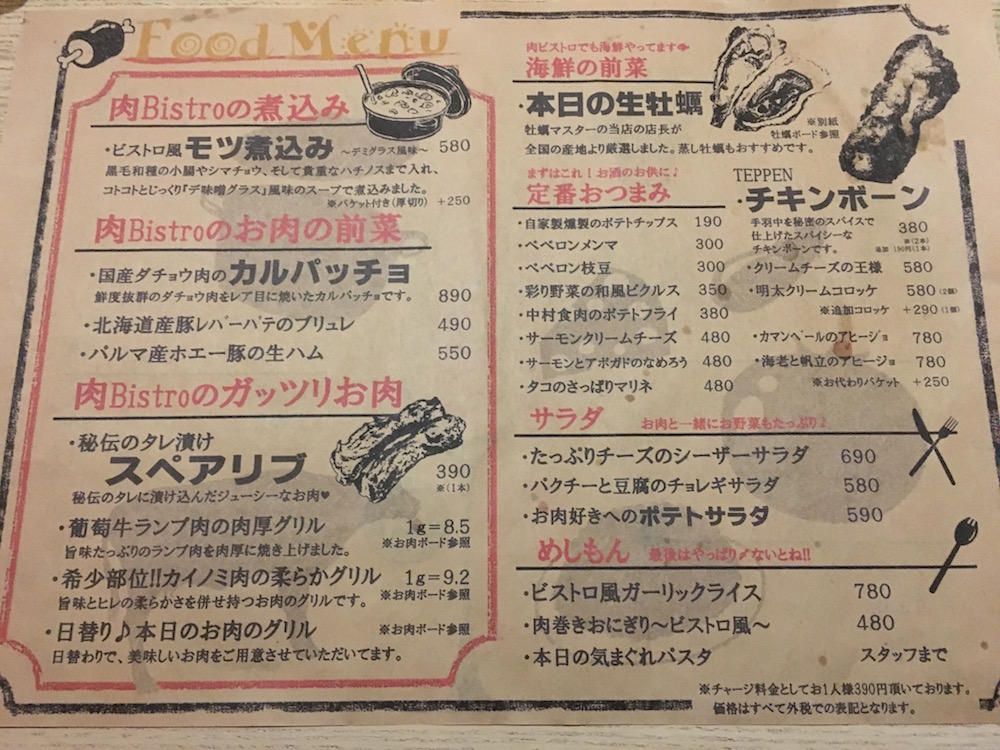 Food Menu
肉Bistroの煮込み
・ビストロ風 モツ煮込み ～デミグラス風味～ 580
黒毛和種の小腸やシマチョウ、そして貴重なハチノスまで入れ、
コトコトとじっくり「デ味噌グラス」風味のスープで煮込みました。
※バケット付き(厚切り) +250
肉Bistroのお肉の前菜
・国産ダチョウ肉のカルパッチョ
鮮度抜群のダチョウ肉をレア目に焼いたカルパッチョです。 890
・北海道産豚レバーパテのブリュレ 490
・パルマ産ホエー豚の生ハム 550
肉Bistroのガッツリお肉
・秘伝のタレ漬け
スペアリブ 390
秘伝のタレに漬け込んだジューシーなお肉♥ ※(1本)
・葡萄牛ランプ肉の肉厚グリル 1g=8.5
旨味たっぷりのランプ肉を肉厚に焼き上げました。 ※お肉ボード参照
・希少部位!!カイノミ肉の柔らかグリル 1g=9.2
旨味とヒレの柔らかさを併せ持つお肉のグリルです。 ※お肉ボード参照
・日替り♪本日のお肉のグリル ※お肉ボード参照
日替わりで、美味しいお肉をご用意させていただいてます。
肉ビストロでも海鮮やってます
海鮮の前菜
・本日の生牡蠣
※別紙
牡蠣ボード参照
牡蠣マスターの当店の店長が
全国の産地より厳選しました。蒸し牡蠣もおすすめです。
まずはこれ！お酒のお供に♪
定番おつまみ
・自家製燻製のポテトチップス 190
・ペペロンメンマ 300
・ペペロン枝豆 300
・彩り野菜の和風ピクルス 350
・中村食肉のポテトフライ 380
・サーモンクリームチーズ 480
・サーモンとアボガドのなめろう 480
・タコのさっぱりマリネ 480
TEPPEN
・チキンボーン
手羽中を秘密のスパイスで
仕上げたスパイシーな
チキンボーンです。
380
※(2本)
追加 190円(1本)
・クリームチーズの王様 580
・明太クリームコロッケ 580(2個)
※追加コロッケ +290(1個)
・カマンベールのアヒージョ 780
・海老と帆立のアヒージョ 780
※お代わりバケット +250
サラダ お肉と一緒にお野菜もたっぷり♪
・たっぷりチーズのシーザーサラダ 690
・パクチーと豆腐のチョレギサラダ 580
・お肉好きへのポテトサラダ 590
めしもん 最後はやっぱり〆ないとね!!
・ビストロ風ガーリックライス 780
・肉巻きおにぎり～ビストロ風～ 480
・本日の気まぐれパスタ スタッフまで
※チャージ料金としてお1人様390円頂いております。
価格はすべて外税での表記となります。